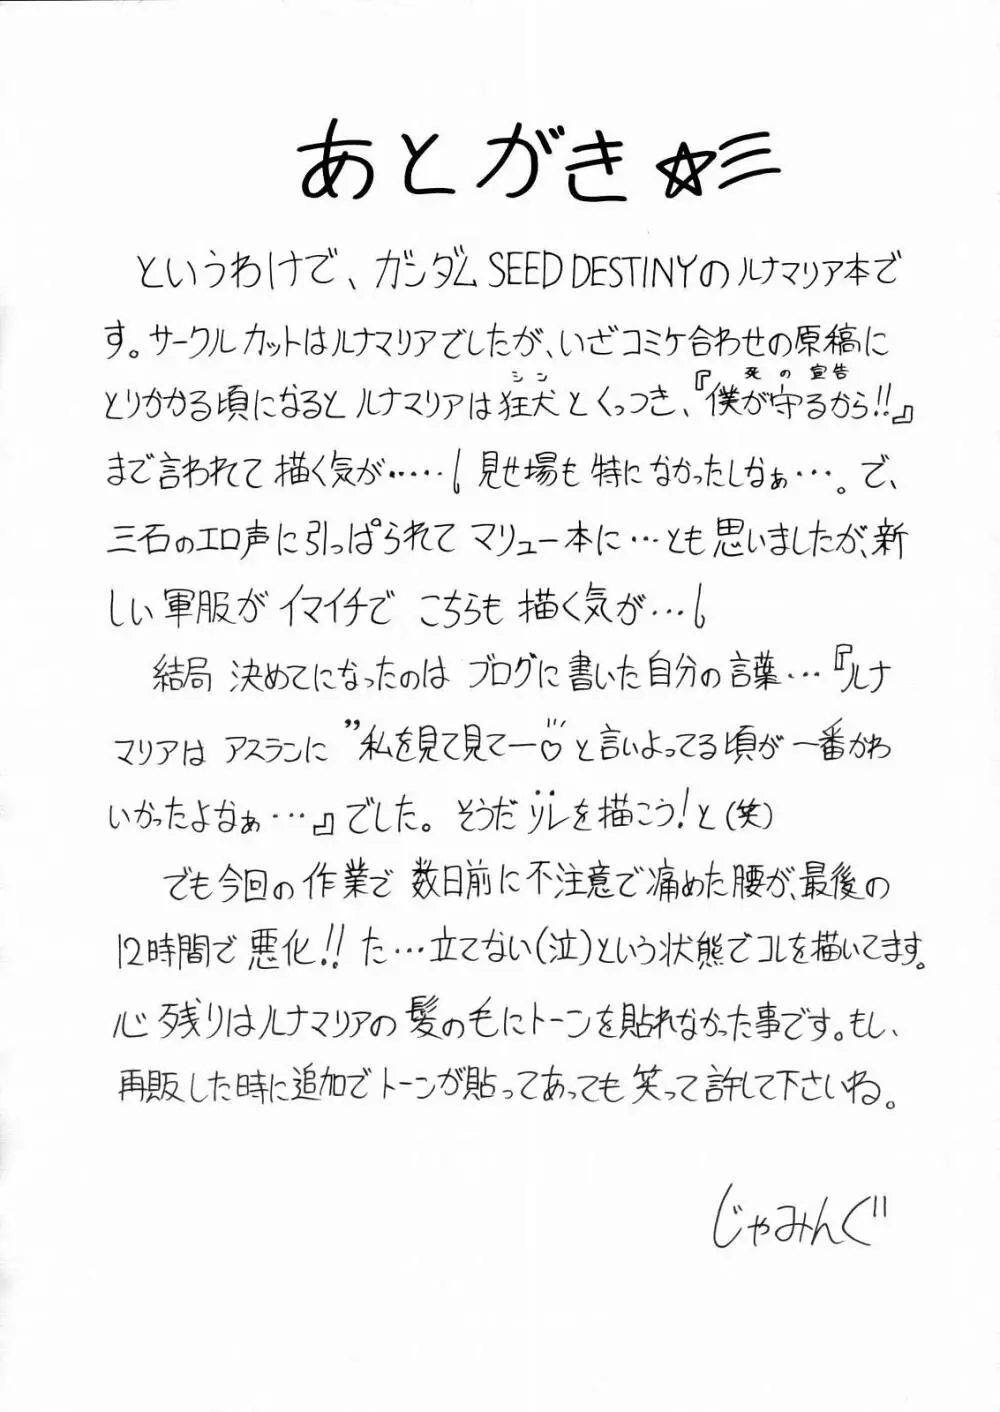 あとがき☆彡
というわけで、ガンダムSEED DESTINYのルナマリア本で
す。サークルカットはルナマリアでしたが、いざコミケ合わせの原稿に
シン 死の宣告
とりかかる頃になるとルナマリアは狂犬とくっつき、『僕が守るから!!』
まで言われて描く気が……見せ場も特になかったしなぁ…。で、
三石のエロ声に引っぱられてマリュー本に…とも思いましたが、新
しい軍服がイマイチでこちらも描く気が…
結局決めてになったのはブログに書いた自分の言葉…『ルナ
マリアはアスランに”私を見て見てー♡”と言いよってる頃が一番かわ
いかったよなぁ…』でした。そうだソレを描こう!と(笑)
でも今回の作業で数日前に不注意で痛めた腰が、最後の
12時間で悪化!!た…立てない(泣)という状態でコレを描いてます。
心残りはルナマリアの髪の毛にトーンを貼れなかった事です。もし、
再販した時に追加でトーンが貼ってあっても笑って許して下さいね。
じゃみんぐ